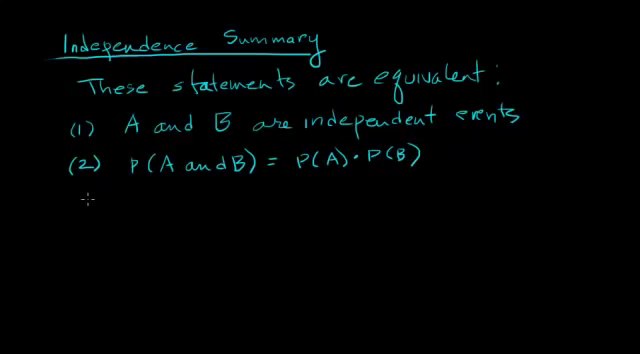 Independence Summary
These statements are equivalent:
(1) A and B are independent events
(2) P(A and B) = P(A) · P(B)